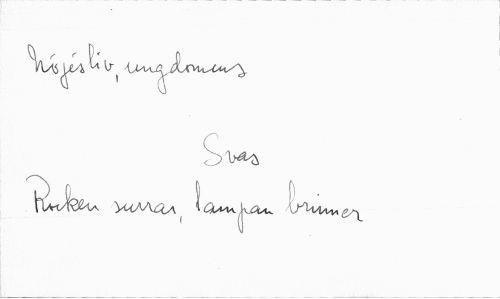 Nöjesliv, ungdomens
Svas
Rocken surrar, lampan brinner